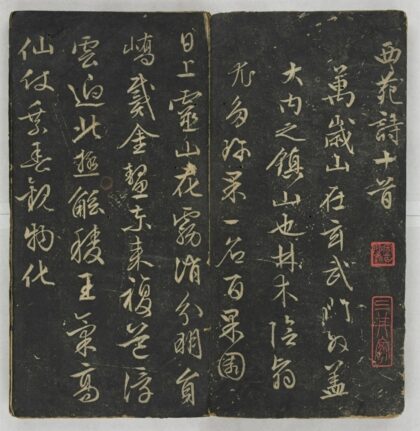 西苑詩十首
萬歲山在玄武門外蓋
大內之鎮山也林木陰翳
尤多珍果一名百果園
日上靈山花霧消分明員
嶠戴金鼇東來複道浮
雲迥北極觚稜王氣高
仙仗乘春觀物化